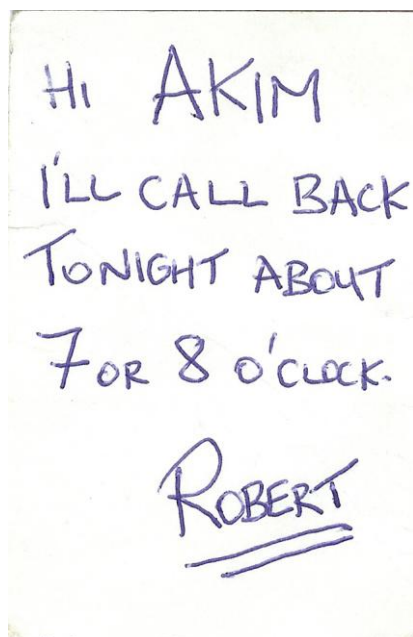 HI AKIM
I'LL CALL BACK
TONIGHT ABOUT
7 OR 8 O'CLOCK.
ROBERT